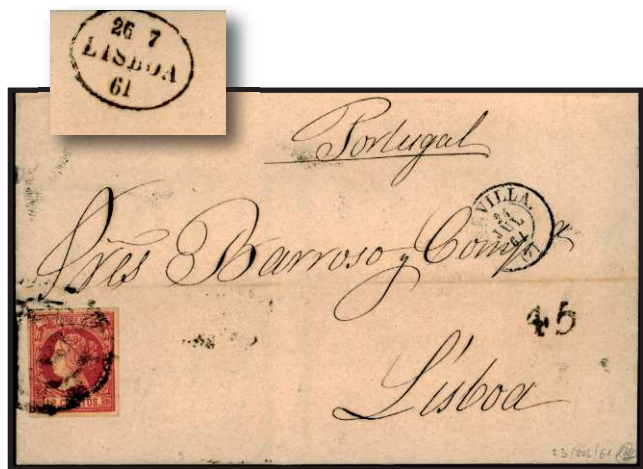 26 7
LISBOA
61
Portugal
SEVILLA.
JUL
61
Sres Barroso y Compa
45
Lisboa
23/JUL/61